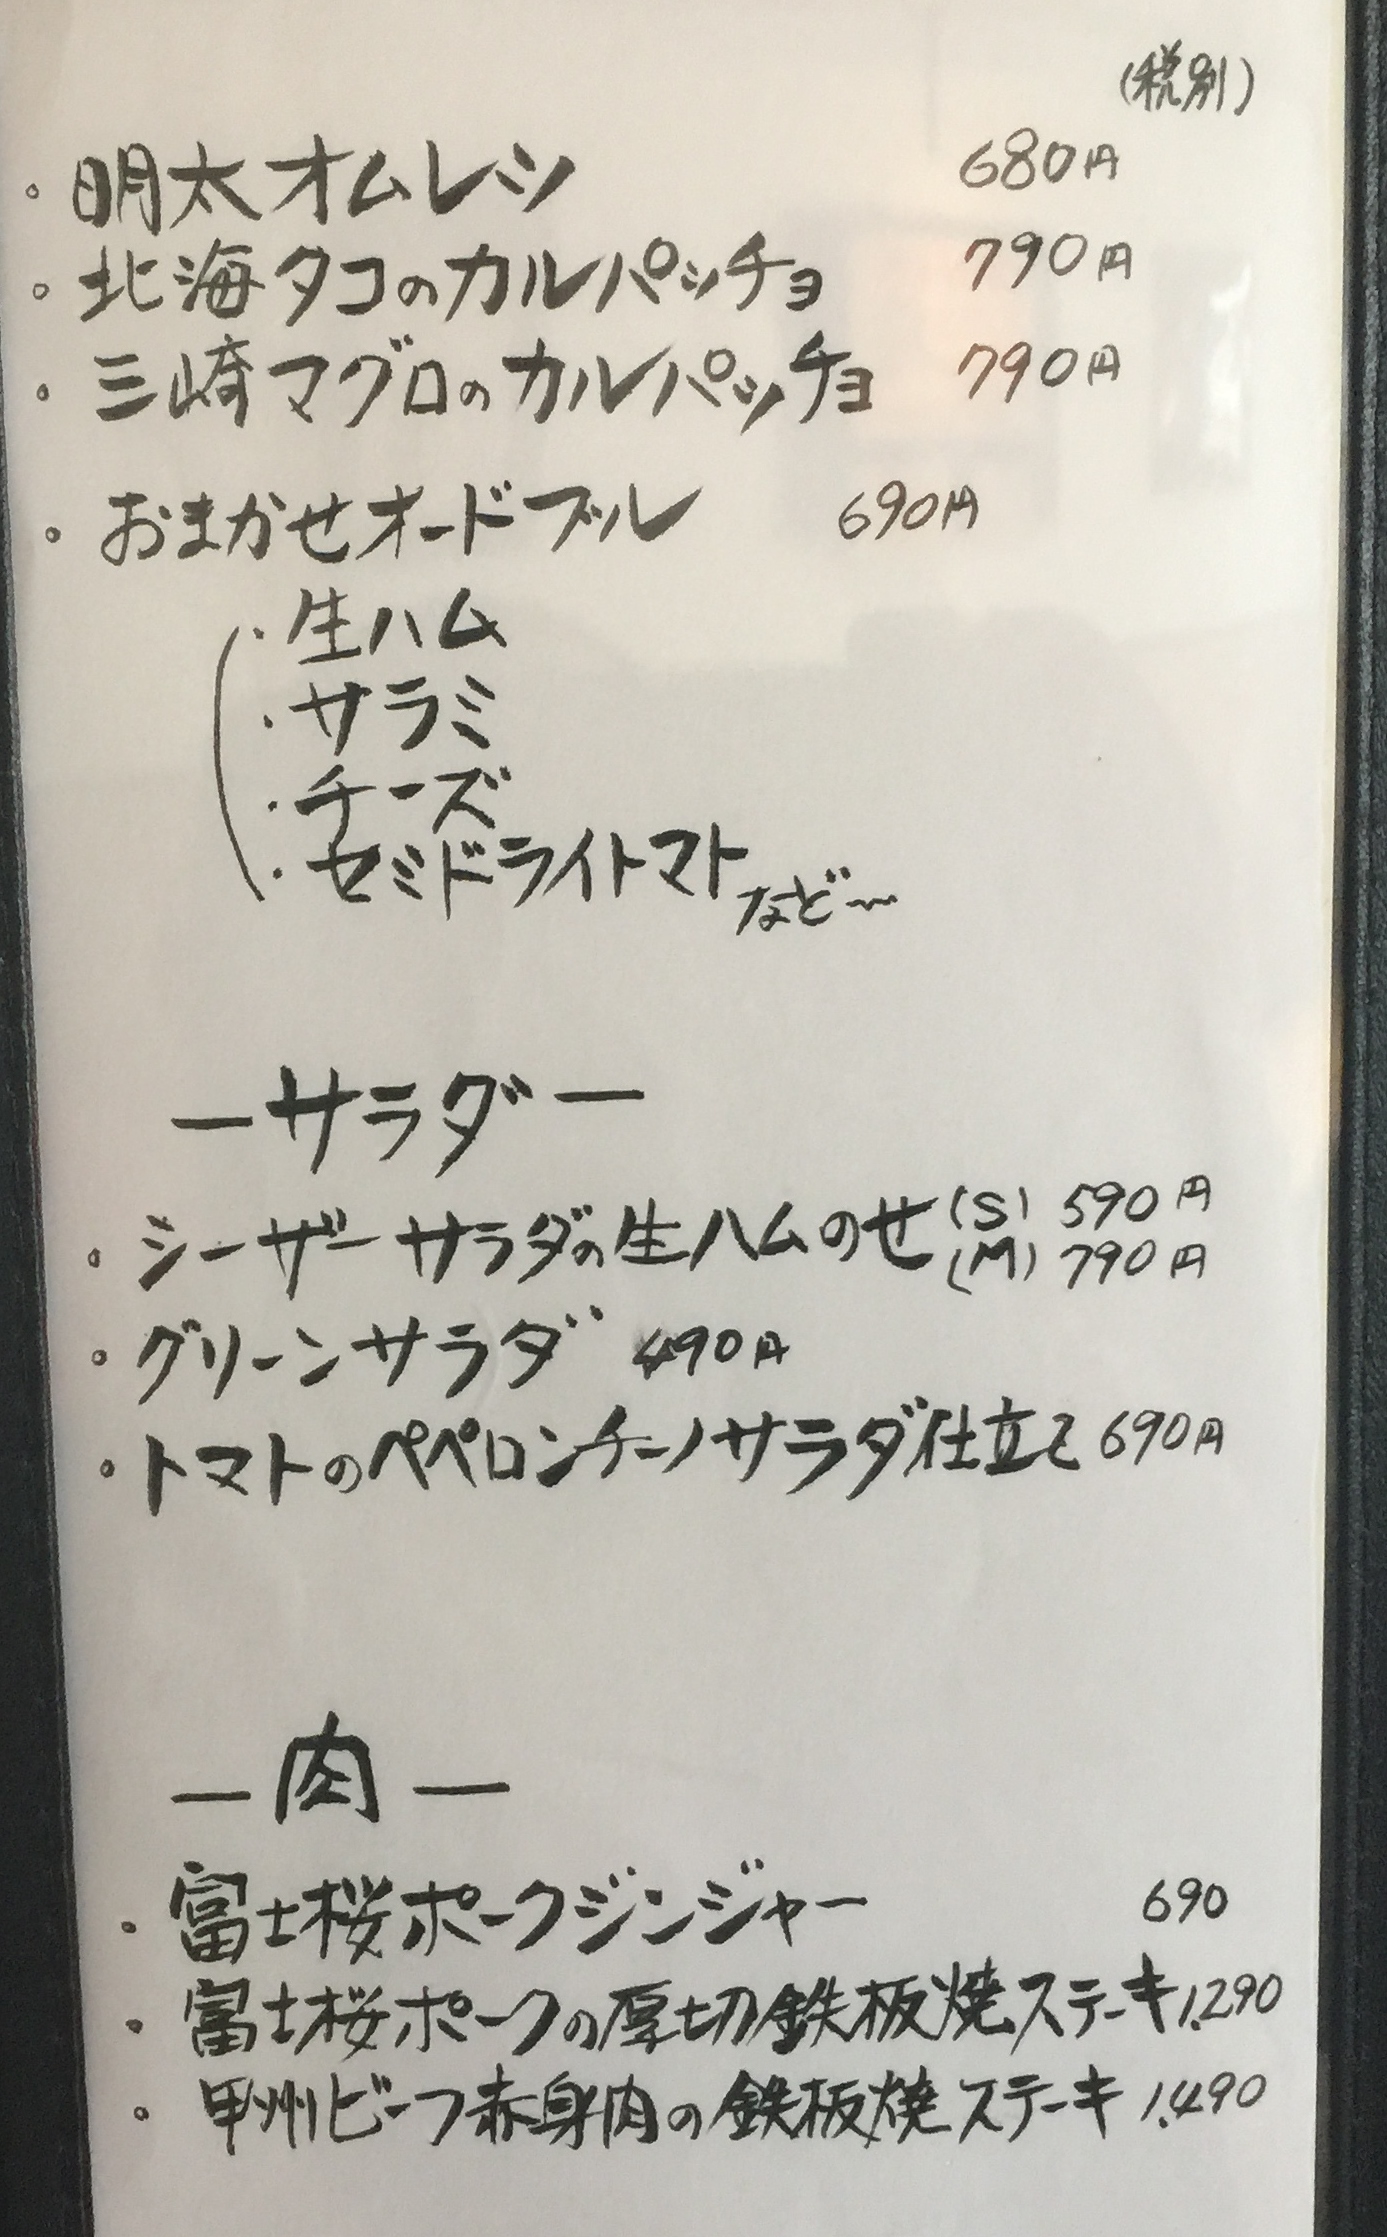 (税別)
・明太オムレツ 680円
・北海タコのカルパッチョ 790円
・三崎マグロのカルパッチョ 790円
・おまかせオードブル 690円
・生ハム
・サラミ
・チーズ
・セミドライトマトなど〜
ーサラダー
・シーザーサラダの生ハムのせ (S) 590円
(M) 790円
・グリーンサラダ 490円
・トマトのペペロンチーノサラダ仕立て 690円
ー肉ー
・富士桜ポークジンジャー 690
・富士桜ポークの厚切鉄板焼ステーキ 1,290
・甲州ビーフ赤身肉の鉄板焼ステーキ 1,490